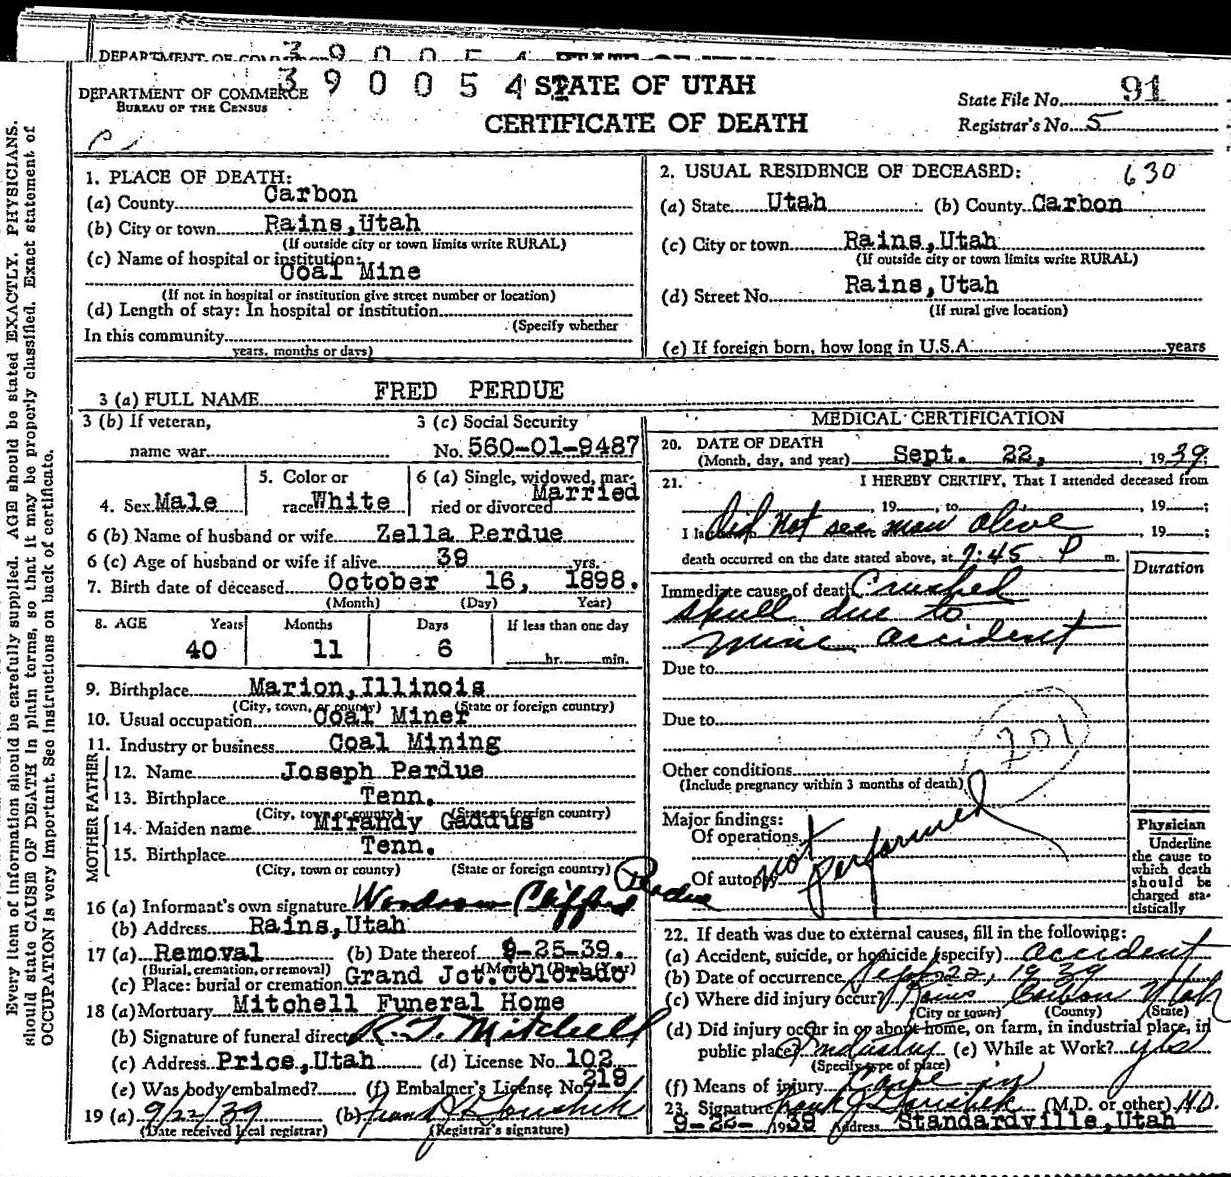 DEPARTMENT OF COMMERCE
3 9 0 0 5 4 STATE OF UTAH
DEPARTMENT OF COMMERCE
BUREAU OF THE CENSUS
CERTIFICATE OF DEATH
State File No. 91
Registrar's No. 5
Every item of information should be carefully supplied. AGE should be stated EXACTLY. PHYSICIANS
should state CAUSE OF DEATH in plain terms, so that it may be properly classified. Exact statement of
OCCUPATION is very important. See instructions on back of certificate.
1. PLACE OF DEATH:
(a) County Carbon
(b) City or town Rains, Utah
(If outside city or town limits write RURAL)
(c) Name of hospital or institution:
Coal Mine
(If not in hospital or institution give street number or location)
(d) Length of stay: In hospital or institution
(Specify whether
In this community
years, months or days)
2. USUAL RESIDENCE OF DECEASED: 630
(a) State Utah (b) County Carbon
(c) City or town Rains, Utah
(If outside city or town limits write RURAL)
(d) Street No. Rains, Utah
(If rural give location)
(e) If foreign born, how long in U.S.A. years
3 (a) FULL NAME FRED PERDUE
3 (b) If veteran,
name war
3 (c) Social Security
No. 560-01-9487
4. Sex Male
5. Color or
race White
6 (a) Single, widowed, mar-
ried or divorced Married
6 (b) Name of husband or wife Zella Perdue
6 (c) Age of husband or wife if alive 39 yrs.
7. Birth date of deceased October 16, 1898.
(Month) (Day) Year)
8. AGE Years Months Days If less than one day
40 11 6 hr. min.
9. Birthplace Marion, Illinois
(City, town, or county) (State or foreign country)
10. Usual occupation Coal Miner
11. Industry or business Coal Mining
FATHER
12. Name Joseph Perdue
13. Birthplace Tenn.
(City, town or county) (State or foreign country)
MOTHER
14. Maiden name Mirandy Gaddus
15. Birthplace Tenn.
(City, town or county) (State or foreign country)
16 (a) Informant's own signature Woodrow Clifford Perdue
(b) Address Rains, Utah
17 (a) Removal (b) Date thereof 9-25-39.
(Burial, cremation, or removal)
(c) Place: burial or cremation Grand Jct. Colorado
18 (a) Mortuary Mitchell Funeral Home
(b) Signature of funeral director R. T. Mitchell
(c) Address Price, Utah (d) License No. 102
(e) Was body embalmed? (f) Embalmer's License No. 219
19 (a) 9/22/39 (b) Frank J.
(Date received local registrar) (Registrar's signature)
MEDICAL CERTIFICATION
20. DATE OF DEATH
(Month, day, and year) Sept. 22, 1939.
21. I HEREBY CERTIFY, That I attended deceased from
, 19 , to , 19 ;
I la did not see man alive , 19 ;
death occurred on the date stated above, at 9:45 P m.
Duration
Immediate cause of death Crushed
skull due to
mine accident
Due to
Due to
201
Other conditions
(Include pregnancy within 3 months of death)
Major findings:
Of operations
Of autopsy not performed
Physician
Underline
the cause to
which death
should be
charged sta-
tistically
22. If death was due to external causes, fill in the following:
(a) Accident, suicide, or homicide (specify) accident
(b) Date of occurrence Sept 22, 1939
(c) Where did injury occur? Rains Carbon Utah
(City or town) (County) (State)
(d) Did injury occur in or about home, on farm, in industrial place, in
public place? Industry (e) While at Work? yes
(Specify type of place)
(f) Means of injury Cave in
23. Signature Frank J. (M.D. or other) M.D.
9-22- 1939 Address Standardville, Utah